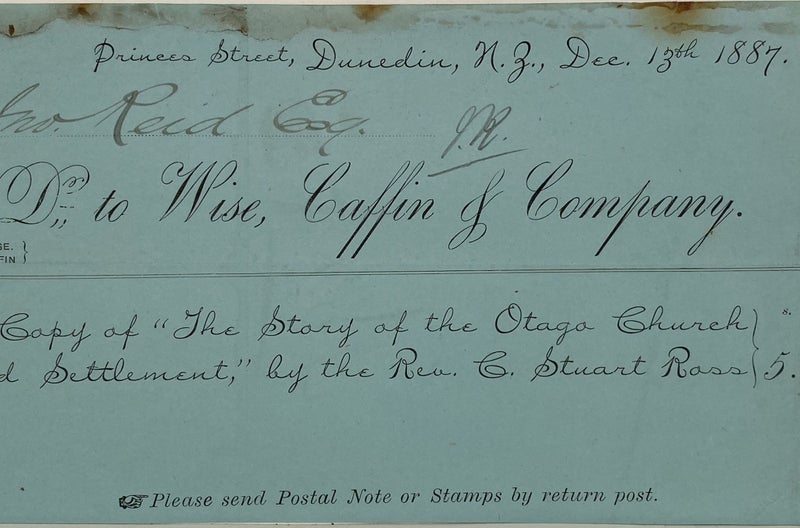 Princes Street, Dunedin, N.Z., Dec. 13th 1887.
Jno. Reid Esq. J.R.
Dr. to Wise, Caffin & Company.
SE. }
FIN }
Copy of "The Story of the Otago Church } s.
d Settlement," by the Rev. C. Stuart Ross } 5.
☞ Please send Postal Note or Stamps by return post.